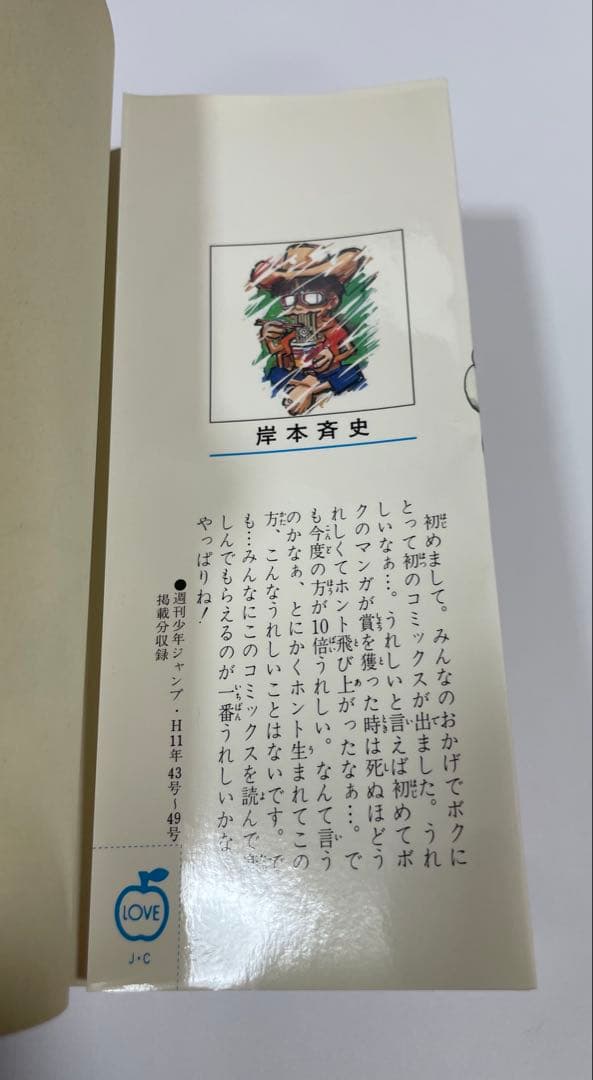 岸本斉史
初めまして。みんなのおかげでボクに
とって初のコミックスが出ました。うれ
しいなぁ…。うれしいと言えば初めてボ
クのマンガが賞を獲った時は死ぬほどう
れしくてホント飛び上がったなぁ…。で
も今度の方が10倍うれしい。なんて言う
のかなぁ、とにかくホント生まれてこの
方、こんなうれしいことはないです。で
も…みんなにこのコミックスを読んで
しんでもらえるのが一番うれしいかな
やっぱりね!
●週刊少年ジャンプ・H11年43号〜49号
掲載分収録
LOVE
J・C